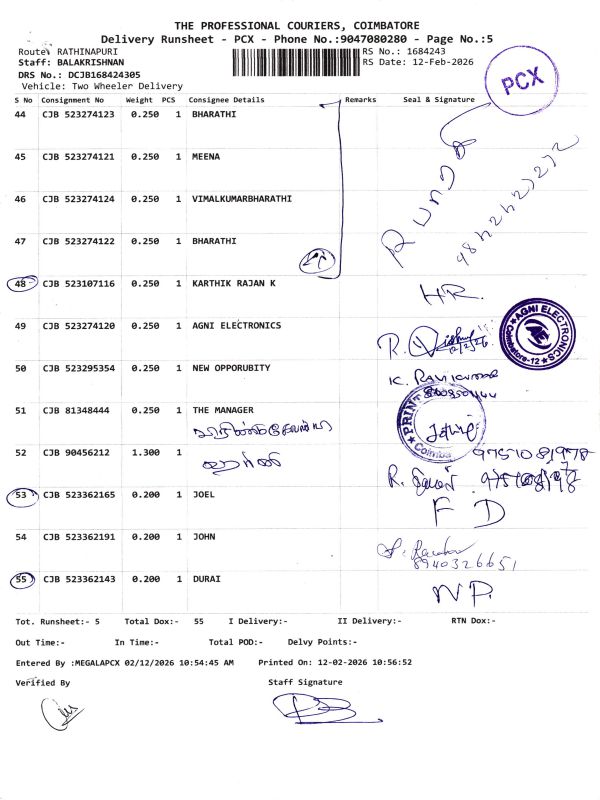 THE PROFESSIONAL COURIERS, COIMBATORE
Delivery Runsheet - PCX - Phone No.:9047080280 - Page No.:5
Route: RATHINAPURI
RS No.: 1684243
Staff: BALAKRISHNAN
RS Date: 12-Feb-2026
DRS No.: DCJB168424305
Vehicle: Two Wheeler Delivery
PCX
S No Consignment No Weight PCS Consignee Details Remarks Seal & Signature
44 CJB 523274123 0.250 1 BHARATHI
45 CJB 523274121 0.250 1 MEENA
46 CJB 523274124 0.250 1 VIMALKUMARBHARATHI
47 CJB 523274122 0.250 1 BHARATHI
48 CJB 523107116 0.250 1 KARTHIK RAJAN K HR.
49 CJB 523274120 0.250 1 AGNI ELECTRONICS R.
AGNI ELECTRONICS
Coimbatore-12
50 CJB 523295354 0.250 1 NEW OPPORUBITY K. RAVIKUMAR
51 CJB 81348444 0.250 1 THE MANAGER
PRINT
Coimba
52 CJB 90456212 1.300 1 9751081978
R.
53 CJB 523362165 0.200 1 JOEL F D
54 CJB 523362191 0.200 1 JOHN
8940326651
55 CJB 523362143 0.200 1 DURAI NP.
Tot. Runsheet:- 5 Total Dox:- 55 I Delivery:- II Delivery:- RTN Dox:-
Out Time:- In Time:- Total POD:- Delvy Points:-
Entered By :MEGALAPCX 02/12/2026 10:54:45 AM Printed On: 12-02-2026 10:56:52
Verified By Staff Signature